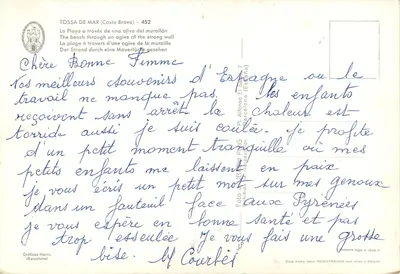 TOSSA DE MAR (Costa Brava) - 452
La Playa a través de una ojiva del murallón
The beach through an ogive of the strong wall
La plage à travers d'une ogive de la muraille
Der Strand durch eine Maueröffnung gesehen
Chère Bonne Femme
Nos meilleurs souvenirs d'Espagne ou le
travail ne manque pas. les enfants
reçoivent sans arrêt la chaleur est
torride aussi je suis coulée. je profite
d'un petit moment tranquille où mes
petits enfants me laissent en paix
je vous écris un petit mot sur mes genoux
dans un fauteuil face aux Pyrénées
je vous espère en bonne santé et pas
trop esseulée Je vous fais une grosse
bise. M Courbès